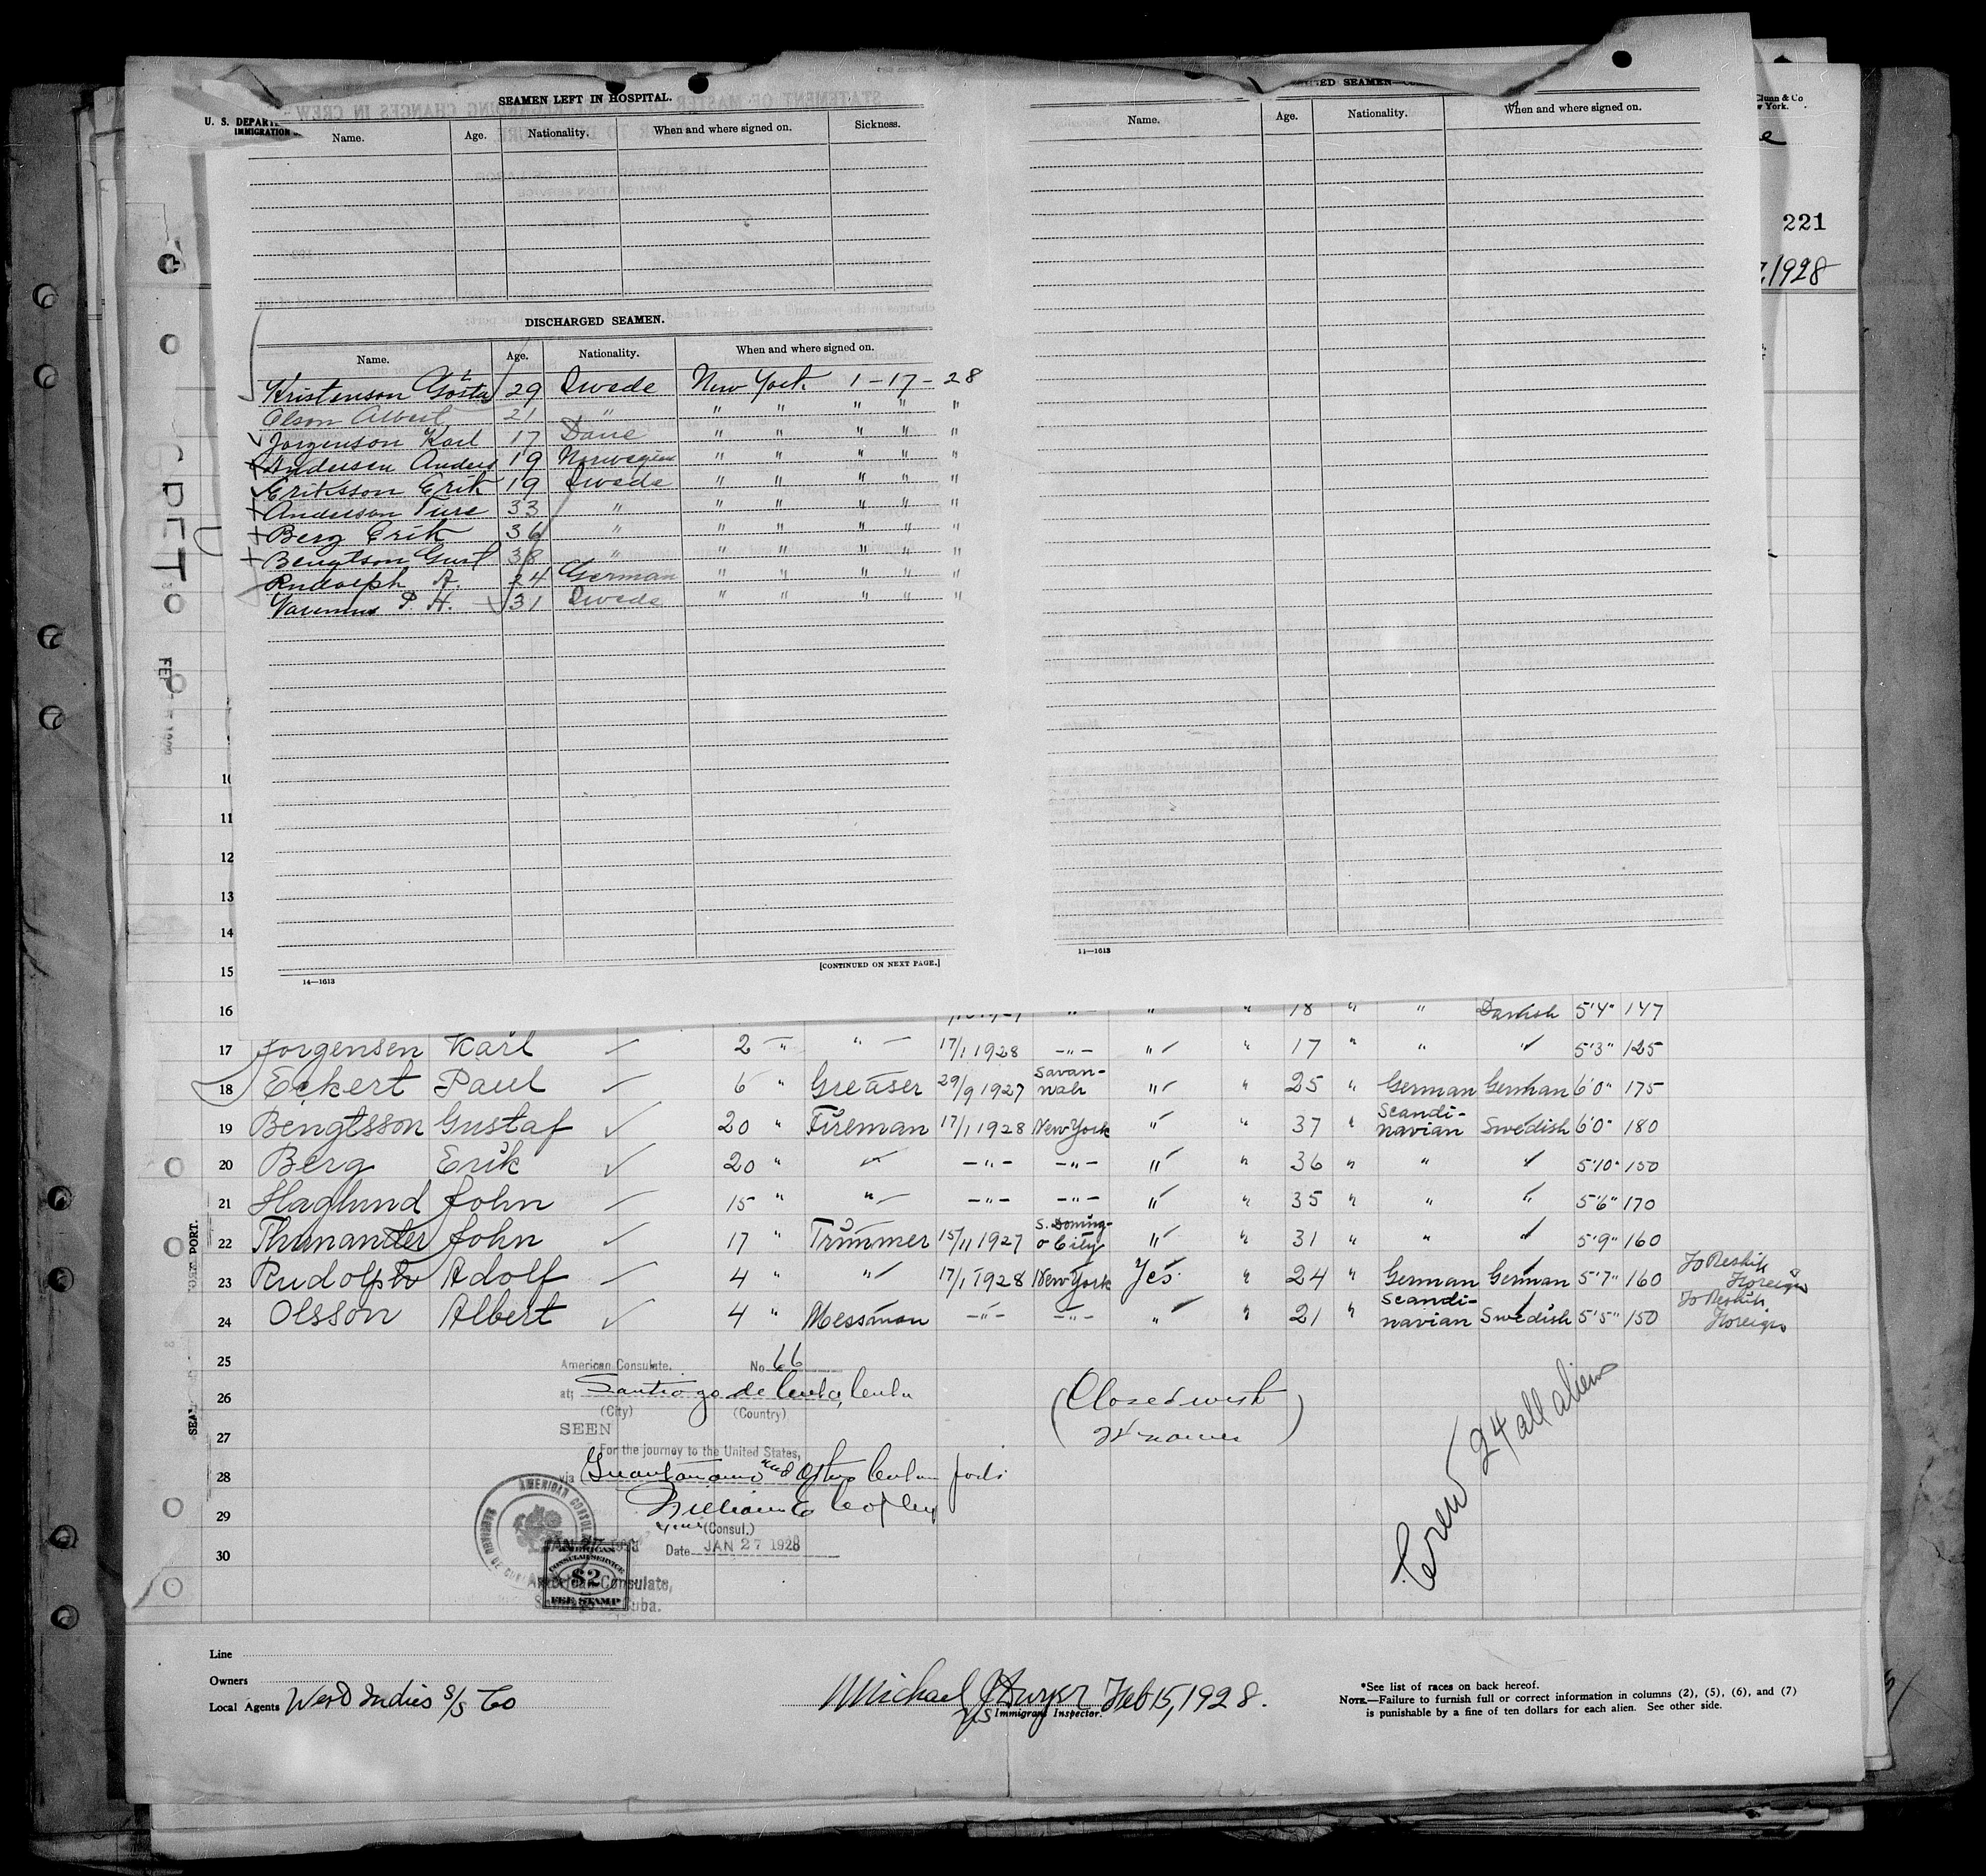 U. S. DEPART
IMMIGRATION
SEAMEN LEFT IN HOSPITAL.
Name. Age. Nationality. When and where signed on. Sickness.
DISCHARGED SEAMEN.
Name. Age. Nationality. When and where signed on.
Kristenson Gösta 29 Swede New York 1-17-28
Olson Albert 21 " " " " " "
Jorgenson Karl 17 Dane " " " " "
Andersen Anders 19 Norwegian " " " " "
Eriksson Erik 19 Swede " " " " "
Anderson Ture 33 " " " " " "
Berg Erik 36 " " " " " "
Bengtson Gust 38 " " " " " "
Rudolph A. 24 German " " " " "
P. H. 31 Swede " " " " "
14—1613
[CONTINUED ON NEXT PAGE.]
SEAMEN
Name. Age. Nationality. When and where signed on.
14—1613
Clunn & Co
w York.
221
1928
FEB
10
11
12
13
14
15
16 " 18 " " Danish 5'4" 147
17 Jorgensen Karl 2 " " 17/1 1928 -"- " " 17 " " " 5'3" 125
18 Eckert Paul 6 " Greaser 29/9 1927 Savannah " " 25 " German German 6'0" 175
19 Bengtsson Gustaf 20 " Fireman 17/1 1928 New York " " 37 " Scandinavian Swedish 6'0" 180
20 Berg Erik 20 " " -"- -"- " " 36 " " " 5'10" 150
21 Haglund John 15 " " -"- -"- " " 35 " " " 5'6" 170
22 Thunander John 17 " Trimmer 15/11 1927 S. Domingo City " " 31 " " " 5'9" 160
23 Rudolph Adolf 4 " " 17/1 1928 New York Yes " 24 " German German 5'7" 160 To Reship Foreign
24 Olsson Albert 4 " Messman -"- -"- " " 21 " Scandinavian Swedish 5'5" 150 To Reship Foreign
25
26
27
28
29
30
American Consulate. No. 66
at Santiago de Cuba, Cuba
(City) (Country)
SEEN
For the journey to the United States,
via Guantanamo and other Cuban ports
William E Copley
(Consul.)
Date JAN 27 1928
AMERICAN CONSULATE
SANTIAGO DE CUBA
JAN 27 1928
AMERICAN
CONSULAR SERVICE
$2
FEE STAMP
American Consulate,
Santiago de Cuba.
(Closed with
24 names)
Crew 24 all aliens
Line
Owners
Local Agents West Indies S/S Co
Michael J Dwyer Feb 15, 1928.
US Immigrant Inspector.
*See list of races on back hereof.
NOTE.—Failure to furnish full or correct information in columns (2), (5), (6), and (7)
is punishable by a fine of ten dollars for each alien. See other side.